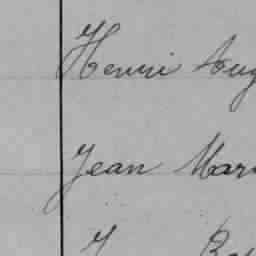 Henri Aug
Jean Mari